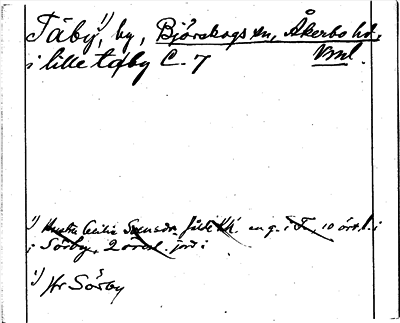 Täby¹⁾, by, Björskogs sn, Åkerbo hd,
i lille täby C. 7 Vml.
¹⁾ Hustru Cecilia Svensdr. en g. i T., 10 örtl. i
i Sörby, 2 örtl. jord i
¹⁾ Hr Sörby